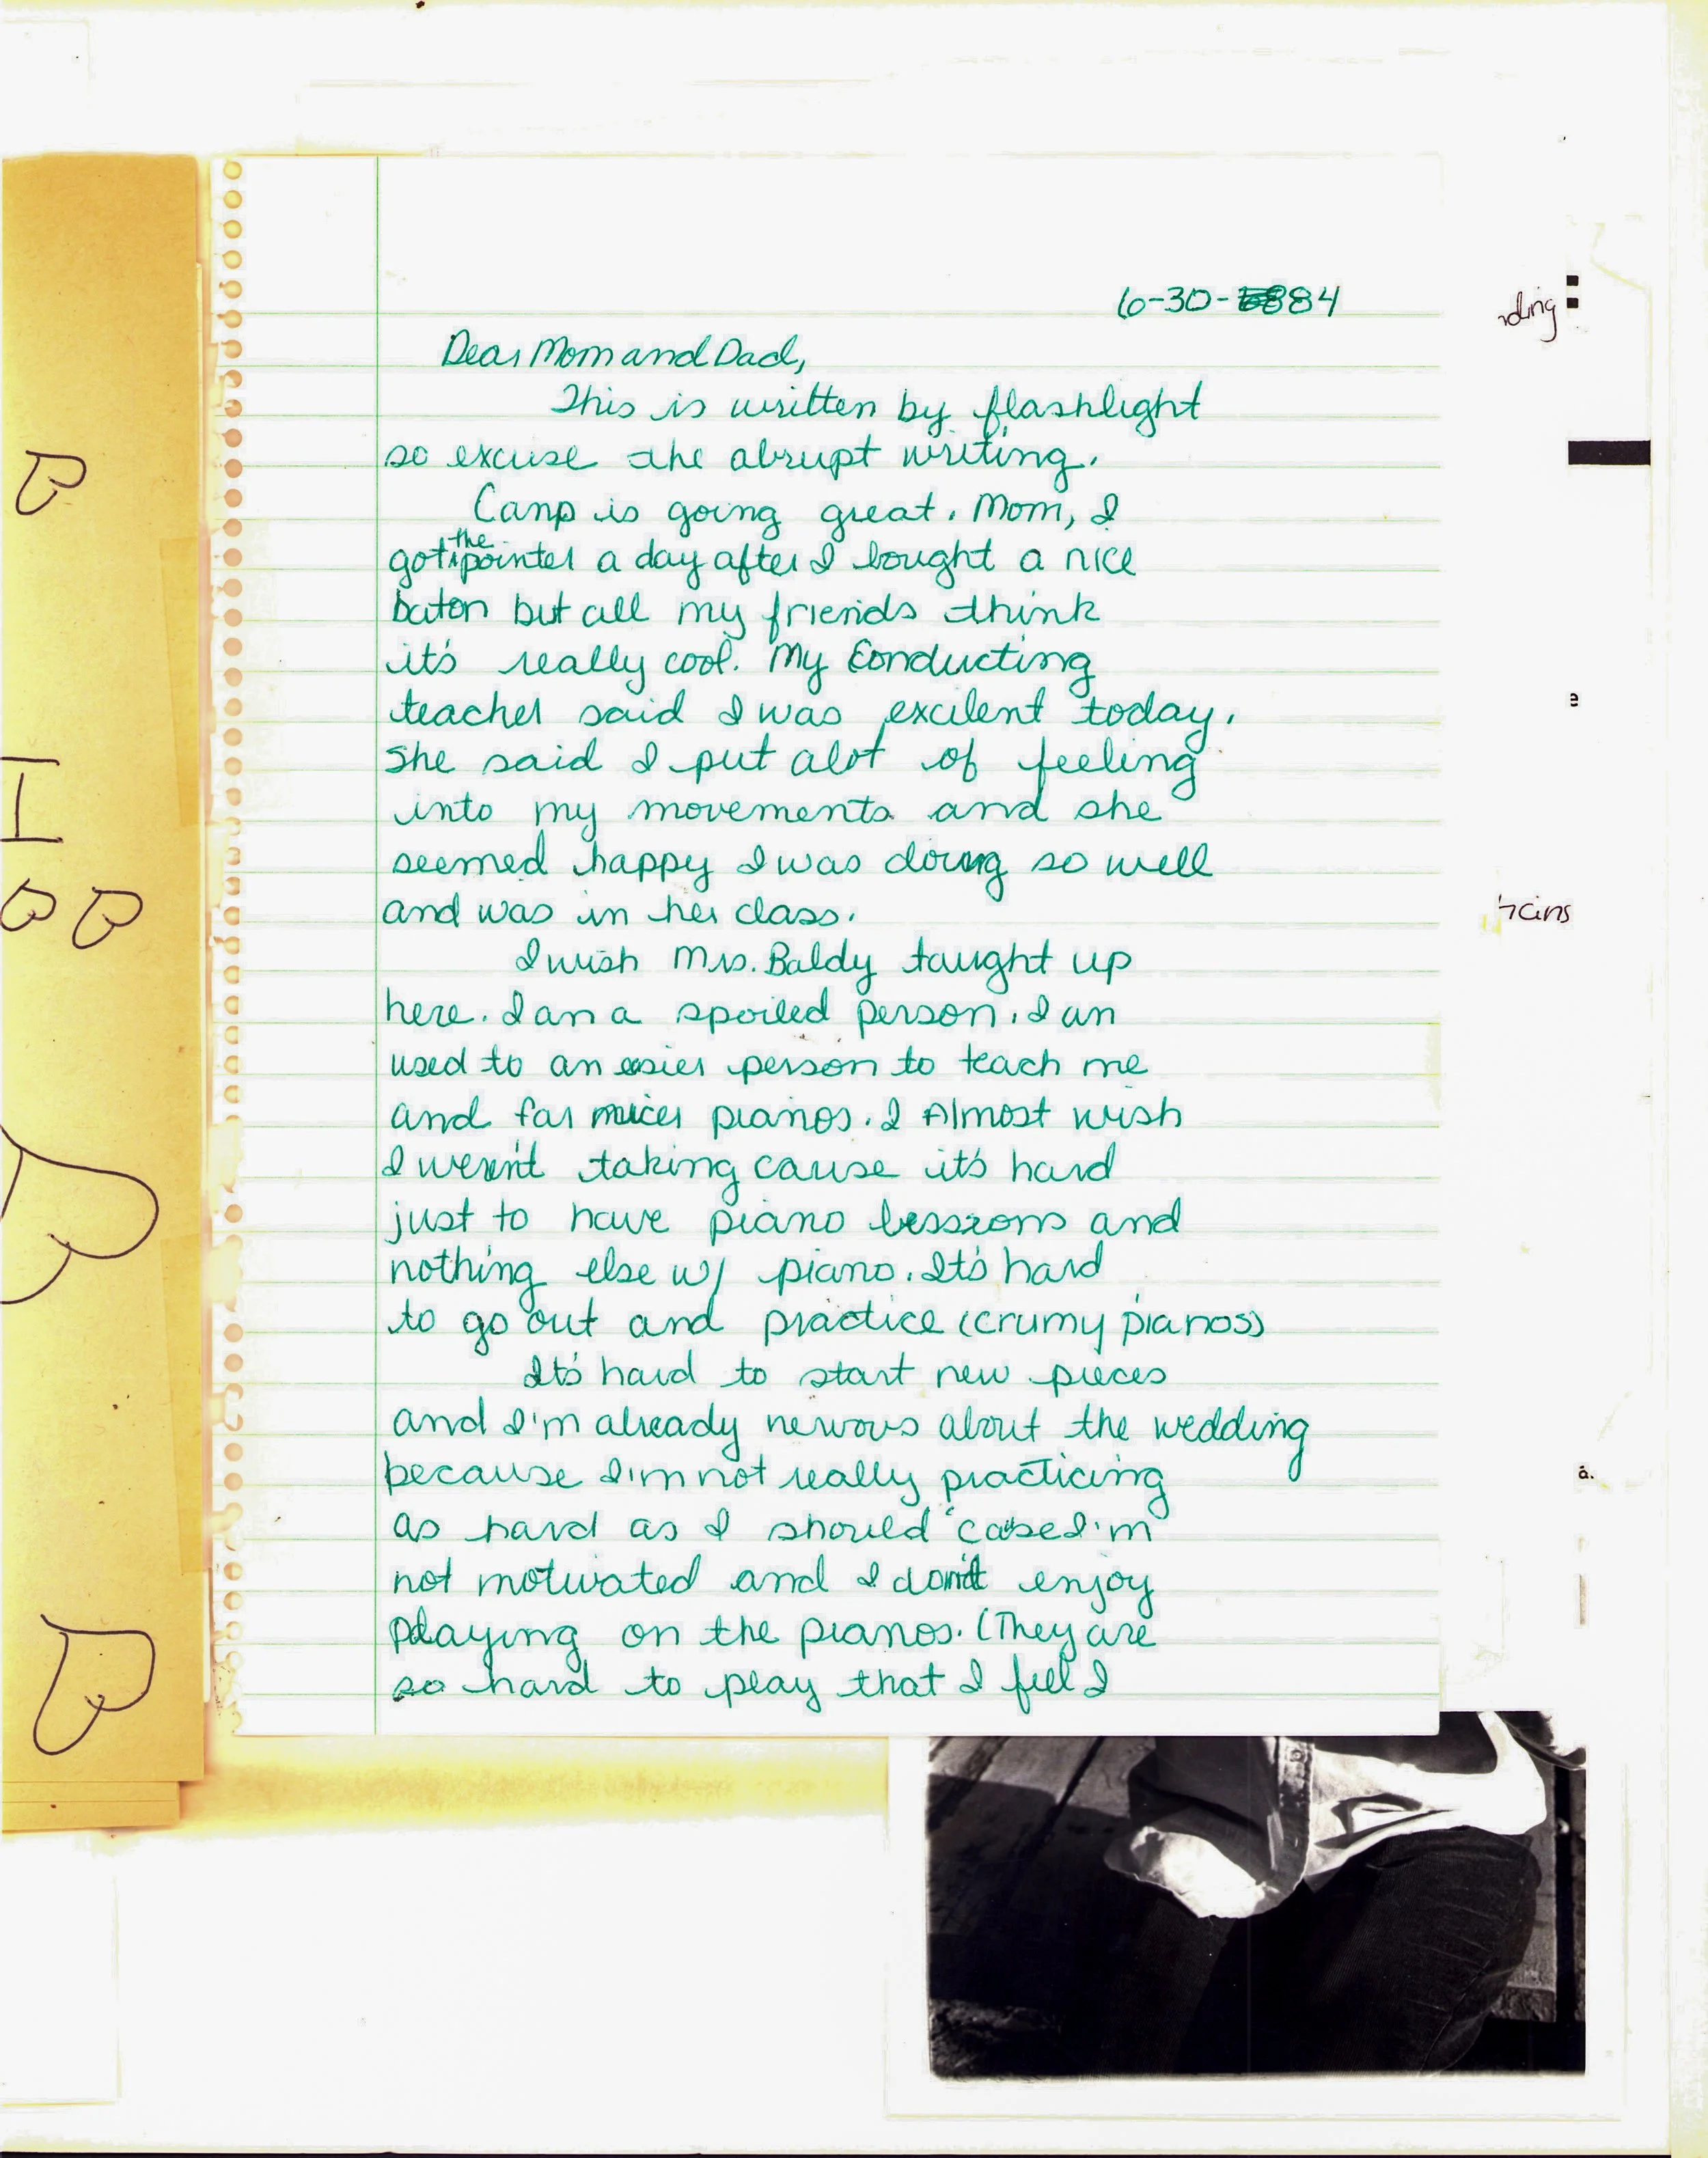 6-30-84
Dear Mom and Dad,
This is written by flashlight
so excuse the abrupt writing.
Camp is going great. Mom, I
got the pointer a day after I bought a nice
baton but all my friends think
it's really cool. My Conducting
teacher said I was excilent today.
She said I put alot of feeling
into my movements and she
seemed happy I was doing so well
and was in her class.
I wish Mrs. Baldy taught up
here. I am a spoiled person. I am
used to an easier person to teach me
and far nicer pianos. I Almost wish
I weren't taking cause it's hard
just to have piano lessons and
nothing else w/ piano. It's hard
to go out and practice (crumy pianos)
It's hard to start new pieces
and I'm already nervous about the wedding
because I'm not really practicing
as hard as I should 'cause I'm
not motivated and I don't enjoy
playing on the pianos. (They are
so hard to play that I fell I